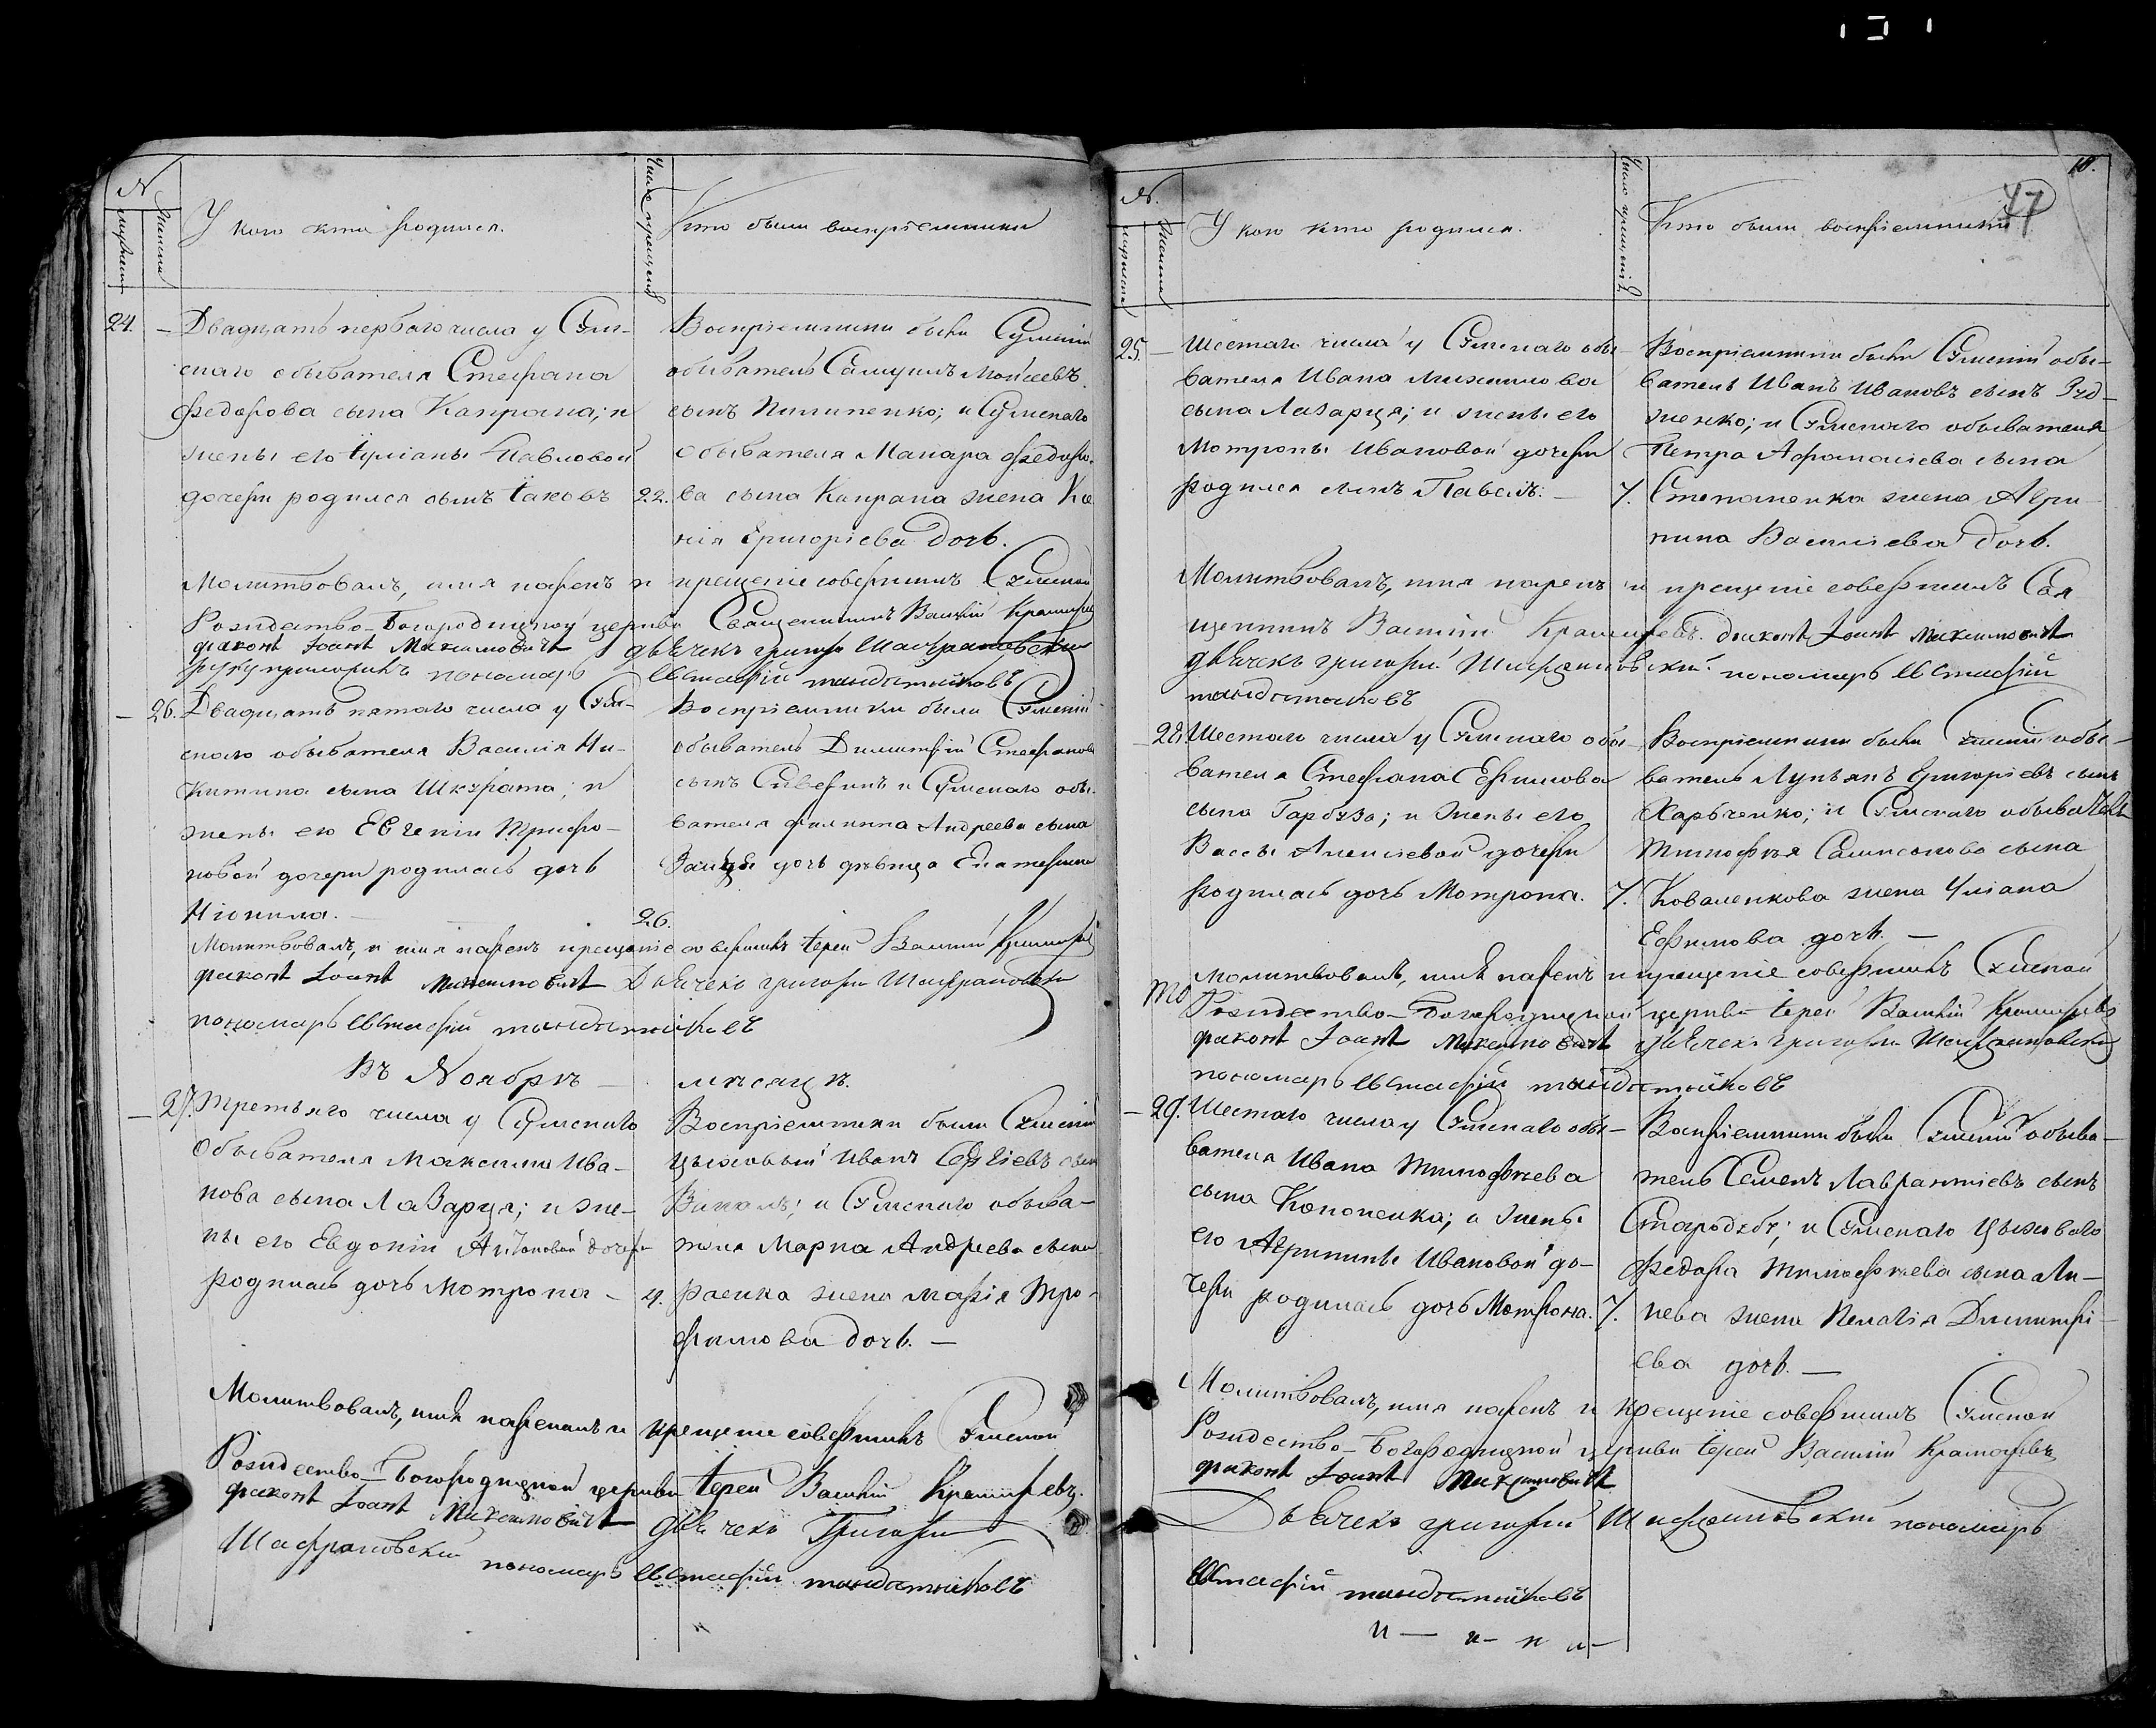 47
10.
№
мужеска
женска
У кого кто родился.
Число крещенія
Кто были воспріемники
24. — Двадцать перваго числа у Сум-
скаго обывателя Стефана
Федорова сына Капрана; и
жены его Іуліаны Павловой
дочери родился сынъ Іаковъ 22.
Воспріемники были Сумскій
обыватель Самуилъ Моисеевъ
сынъ Пилипенко; и Сумскаго
обывателя Макара Федоро-
ва сына Капрана жена
Григоріева дочь.
Молитвовалъ, имя нарекъ и крещеніе совершилъ Сумской
Рождество-Богородицкой церкви Священникъ Василій
диаконъ Іоаннъ Максимовичъ дьячекъ Григорій Шафрановскій
руку приложилъ пономарь Евстафій
— 26. Двадцать пятаго числа у Сум-
скаго обывателя Василія Ни-
китина сына Шкурата; и
жены его Евгеніи Трифо-
новой дочери родилась дочь
Нионила. — 26.
Воспріемники были Сумскій
обыватель Димитрій Стефановъ
сынъ Сиверинъ и Сумскаго обы-
вателя Филиппа Андреева сына
дочь дѣвица Екатерина
Молитвовалъ, и имя нарекъ крещеніе совершилъ Іерей Василій
диаконъ Іоаннъ Максимовичъ Дьячекъ Григорій Шафрановскій
пономарь Евстафій
Въ Ноябрѣ — мѣсяцѣ.
— 27. Третьяго числа у Сумскаго
Обывателя Максима Ива-
нова сына Лазарця; и же-
ны его Евдокіи Антоновой дочери
родилась дочь Мотрона — 4.
Воспріемники были Сумскій
цеховый Иванъ Сергіевъ сынъ
и Сумскаго обыва-
теля Марка Андреева сына
жена Марія Тро-
фимова дочь. —
Молитвовалъ, имя нарекалъ и крещеніе совершилъ Сумской
Рождество-Богородицкой церкви Іерей Василій
диаконъ Іоаннъ Максимовичъ дьячекъ Григорій
Шафрановскій пономарь Евстафій
№.
мужеска
женска
У кого кто родился.
Число крещенія
Кто были воспріемники
25. — Шестаго числа у Сумскаго обы-
вателя Ивана Михайлова
сына Лазарця; и жены его
Мотроны Ивановой дочери
родился сынъ Павелъ. — 7.
Воспріемники были Сумскій обы-
ватель Иванъ Ивановъ сынъ Руд-
женко; и Сумскаго обывателя
Петра Афанасіева сына
Степаненка жена Агри-
пина Василіева дочь.
Молитвовалъ, имя нарекъ и крещеніе совершилъ Свя
щенникъ Василій диаконъ Іоаннъ Максимовичъ
дьячекъ Григорій Шафрановскій пономарь Евстафій
— 28. Шестаго числа у Сумскаго обы-
вателя Стефана Ефимова
сына Гарбуза; и жены его
Вассы Алексіевой дочери
родилась дочь Мотрона. 7.
Воспріемники были Сумскій обы-
ватель Лукьянъ Григоріевъ сынъ
Харьченко; и Сумскаго обывателя
Тимофѣя Самсонова сына
Коваленкова жена Уліана
Ефимова дочь. —
Молитвовалъ, имя нарекъ и крещеніе совершилъ Сумской
Рождество-Богородицкой церкви Іерей Василій
диаконъ Іоаннъ Максимовичъ дьячекъ Григорій Шафрановскій
пономарь Евстафій
— 29. Шестаго числа у Сумскаго обы-
вателя Ивана Тимофѣева
сына Кононенка; и жены
его Агрипины Ивановой до-
чери родилась дочь Мотрона. 7.
Воспріемники были Сумскій обыва-
тель Семенъ Лаврентіевъ сынъ
Стародубъ; и Сумскаго Цеховаго
Федора Тимофѣева сына
жена Пелагія Димитрі-
ева дочь. —
Молитвовалъ, имя нарекъ и крещеніе совершилъ Сумской
Рождество-Богородицкой церкви Іерей Василій
диаконъ Іоаннъ Максимовичъ
Дьячекъ Григорій Шафрановскій пономарь
Евстафій